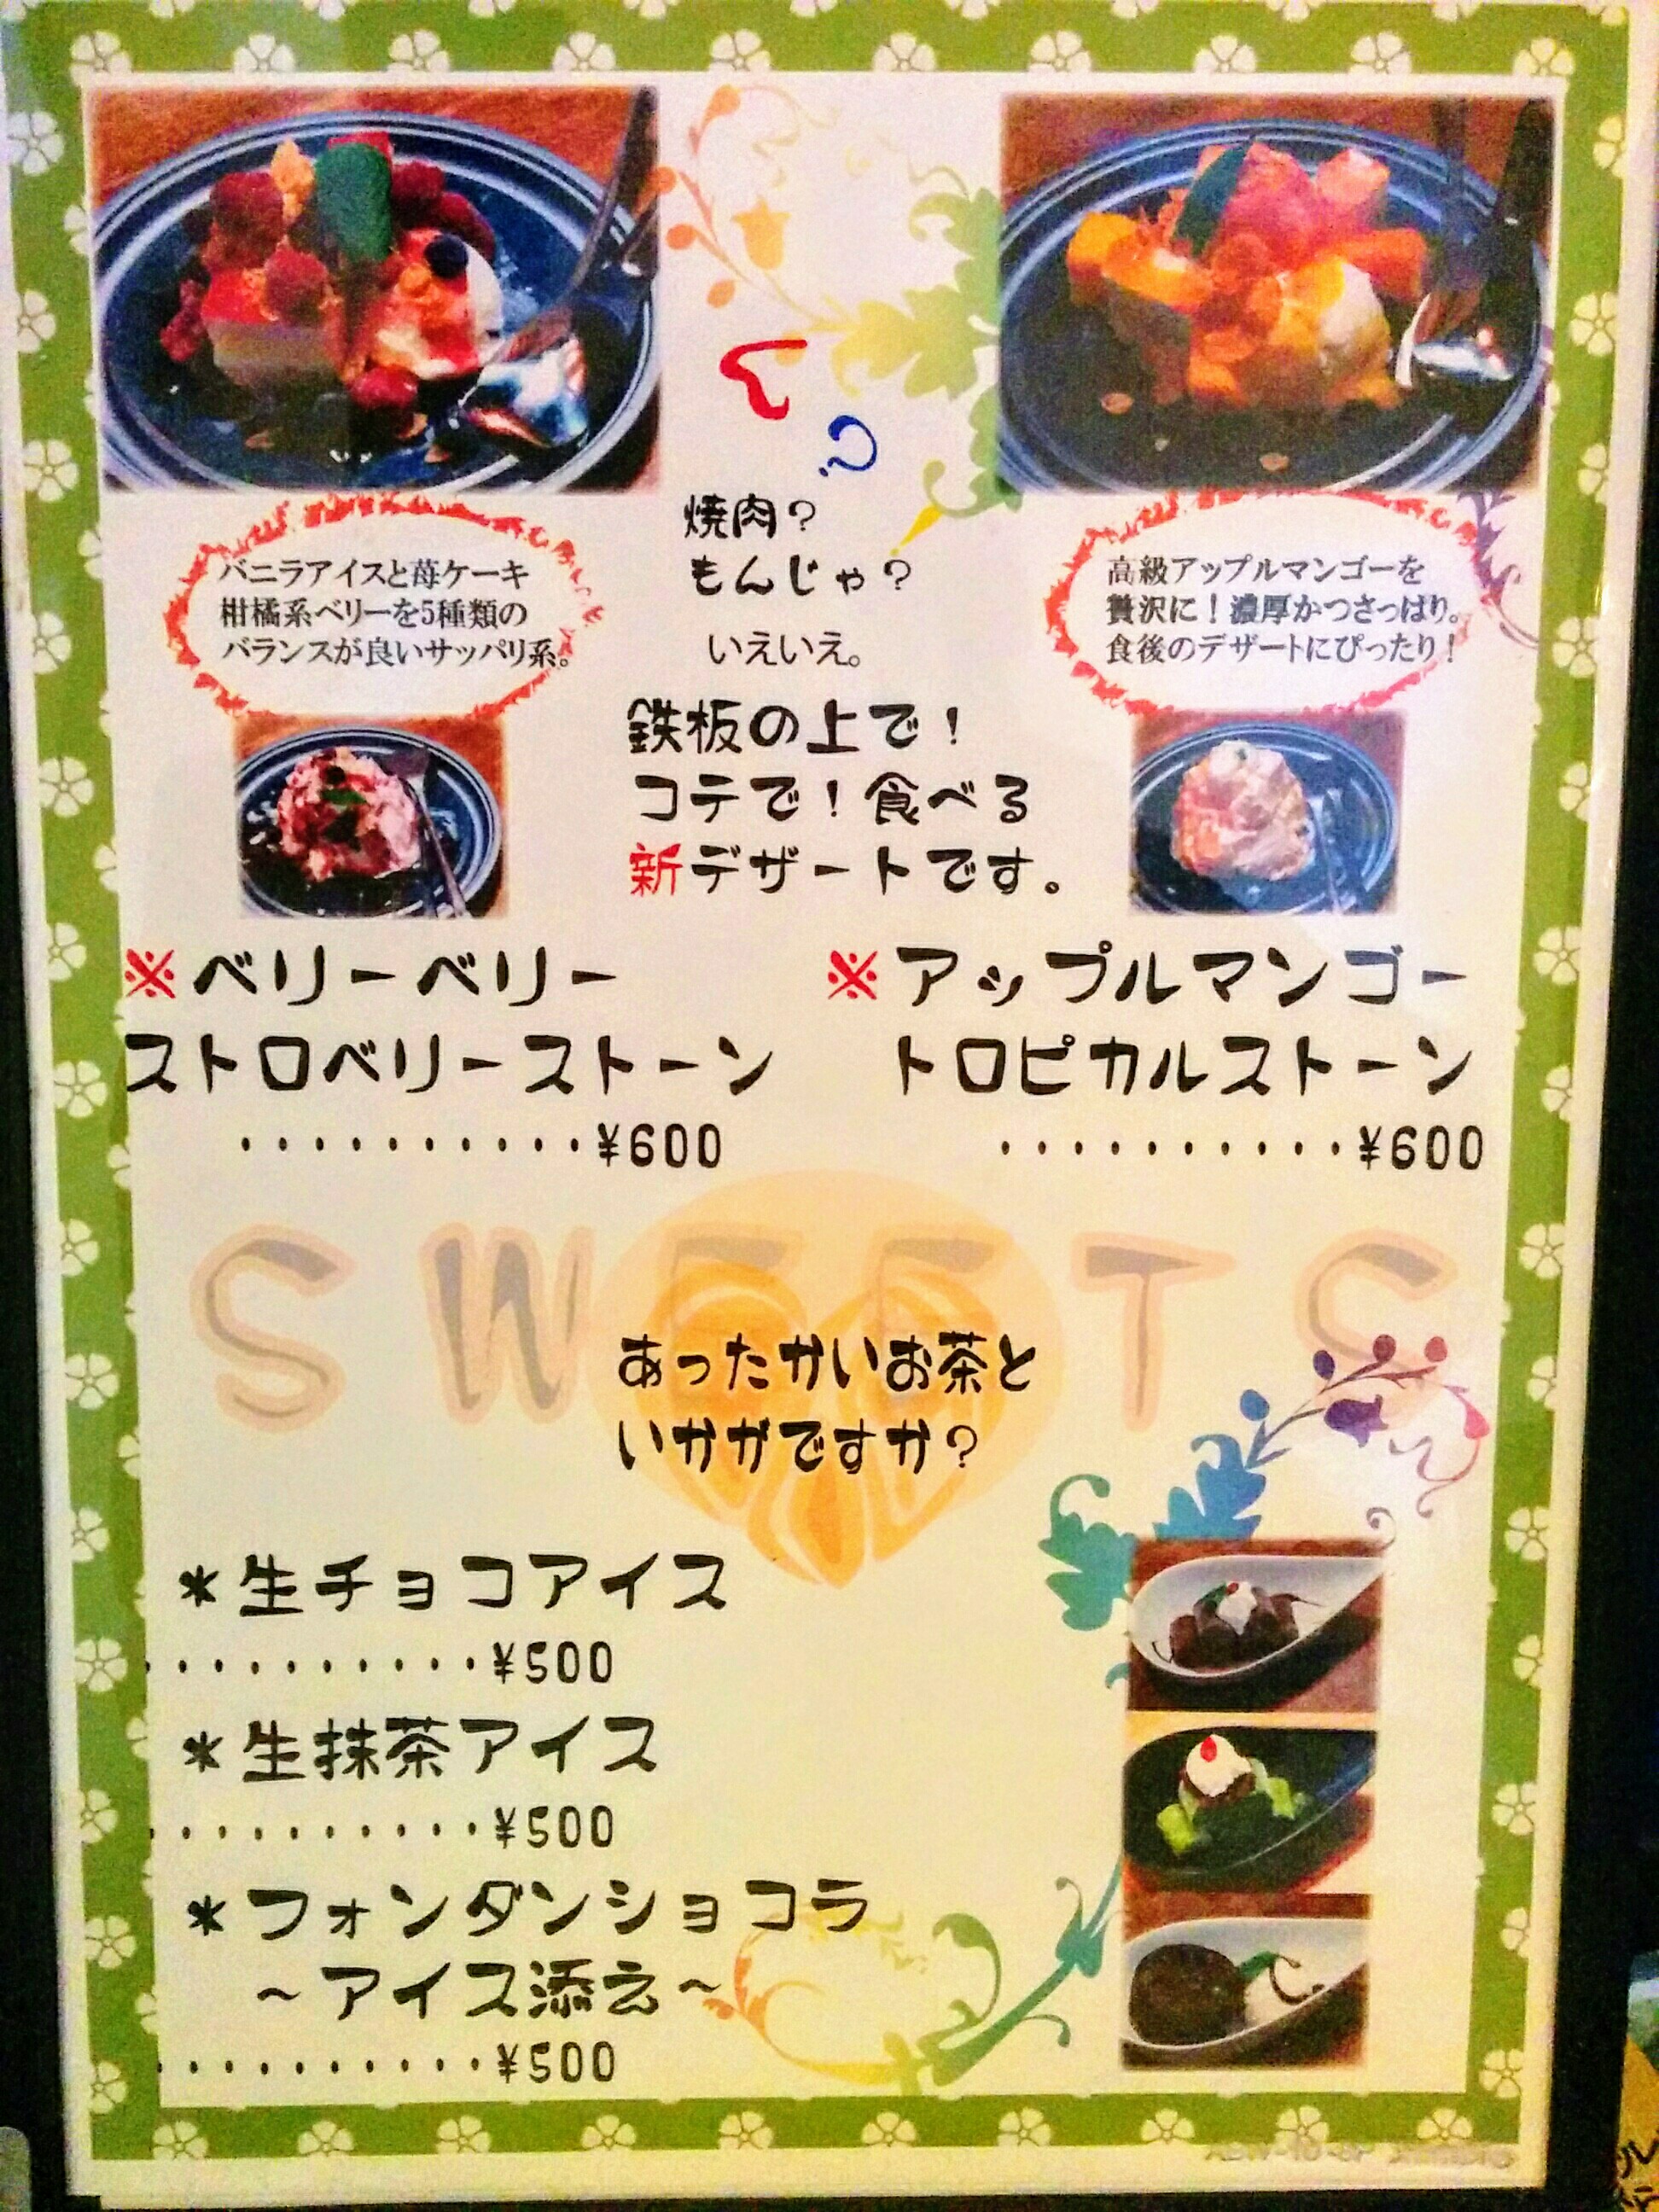 焼肉?
もんじゃ?
いえいえ。
鉄板の上で!
コテで!食べる
新デザートです。
バニラアイスと苺ケーキ
柑橘系ベリーを5種類の
バランスが良いサッパリ系。
高級アップルマンゴーを
贅沢に!濃厚かつさっぱり。
食後のデザートにぴったり!
※ベリーベリー
ストロベリーストーン
・・・・・・・・・・¥600
※アップルマンゴー
トロピカルストーン
・・・・・・・・・・¥600
SWEETS
あったかいお茶と
いかがですか?
*生チョコアイス
・・・・・・・・・・¥500
*生抹茶アイス
・・・・・・・・・・¥500
*フォンダンショコラ
~アイス添え~
・・・・・・・・・・¥500